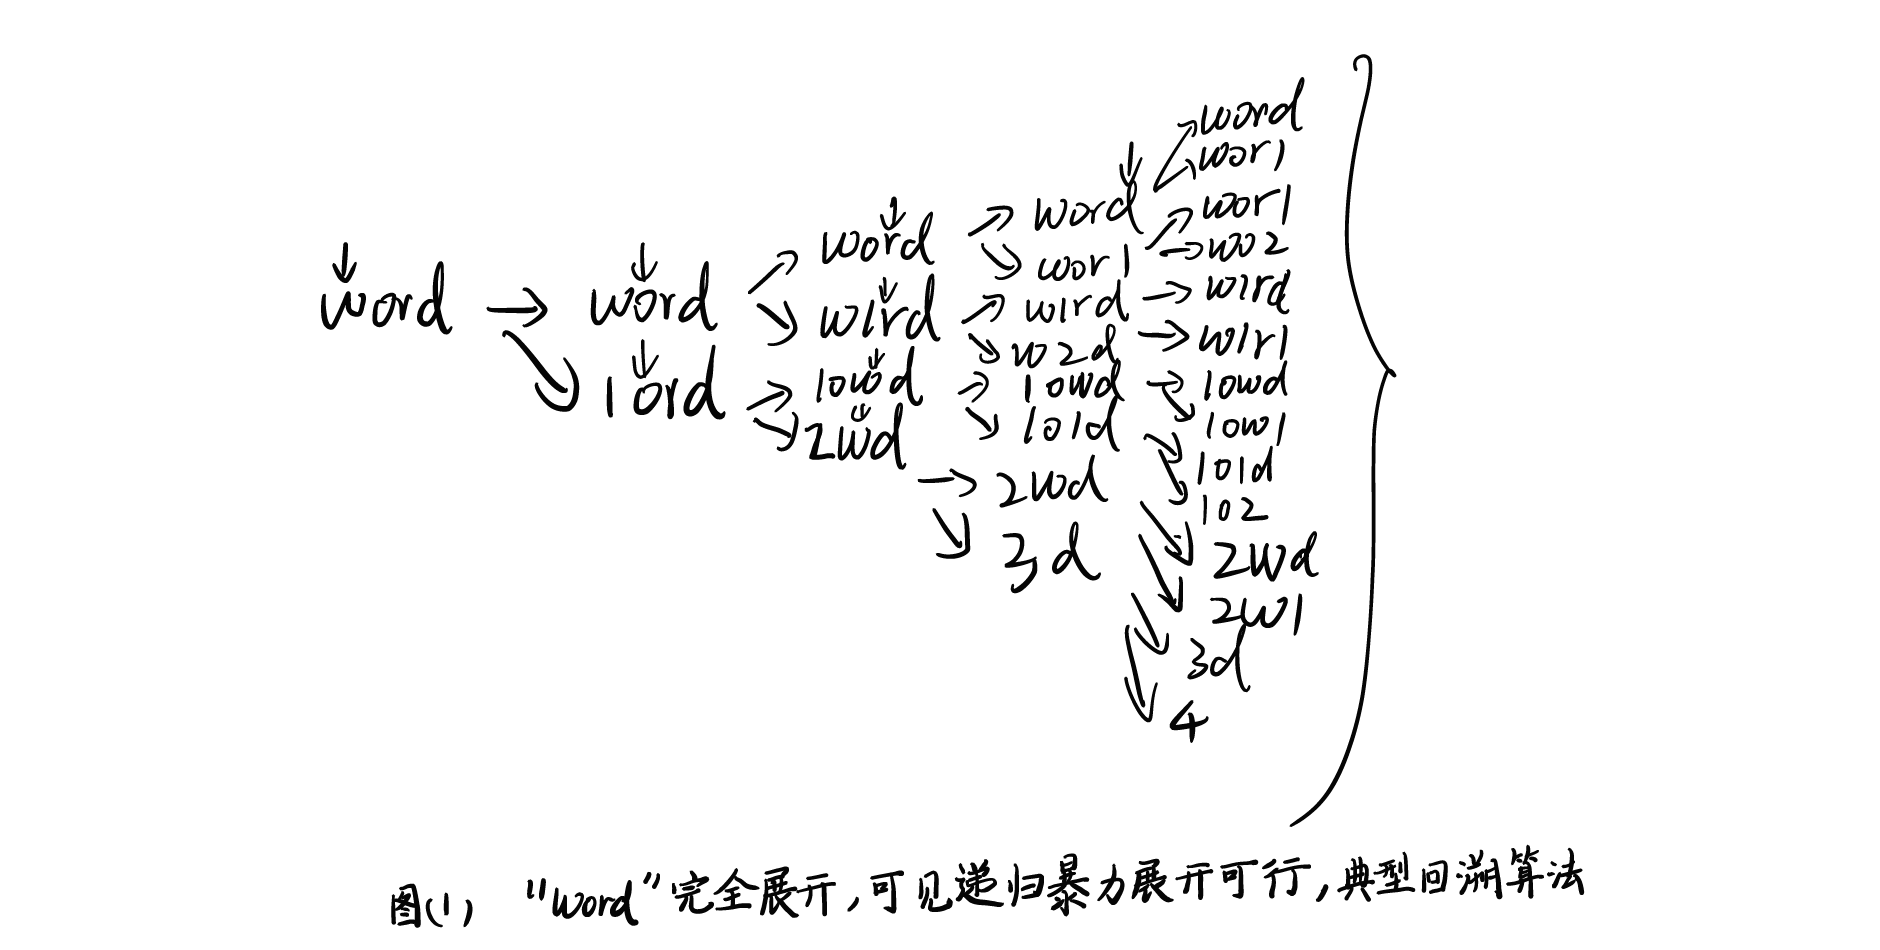 word
word
1ord
word
w1rd
10wd
2wd
word
wor1
w1rd
w2d
10wd
101d
2wd
3d
word
wor1
wor1
wo2
w1rd
w1r1
10wd
10w1
101d
102
2wd
2w1
3d
4
图(1) "word"完全展开,可见递归暴力展开可行,典型回溯算法